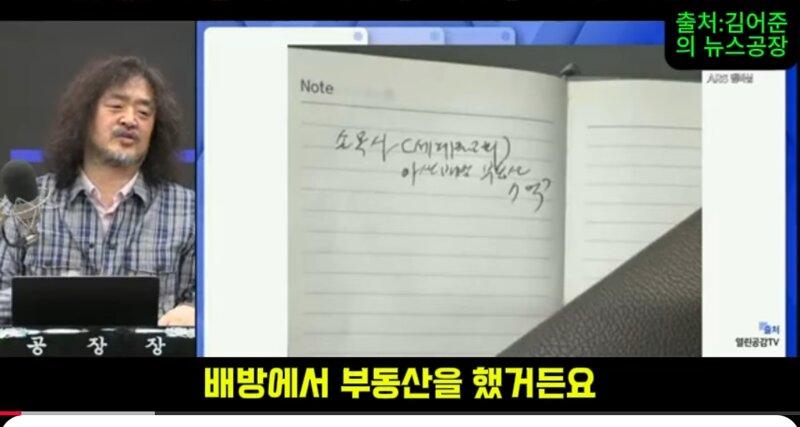 출처:김어준
의 뉴스공장
Note
소목사 (세계로교회)
아산 배방 부동산
출처
열린공감TV
공 장 장
배방에서 부동산을 했거든요